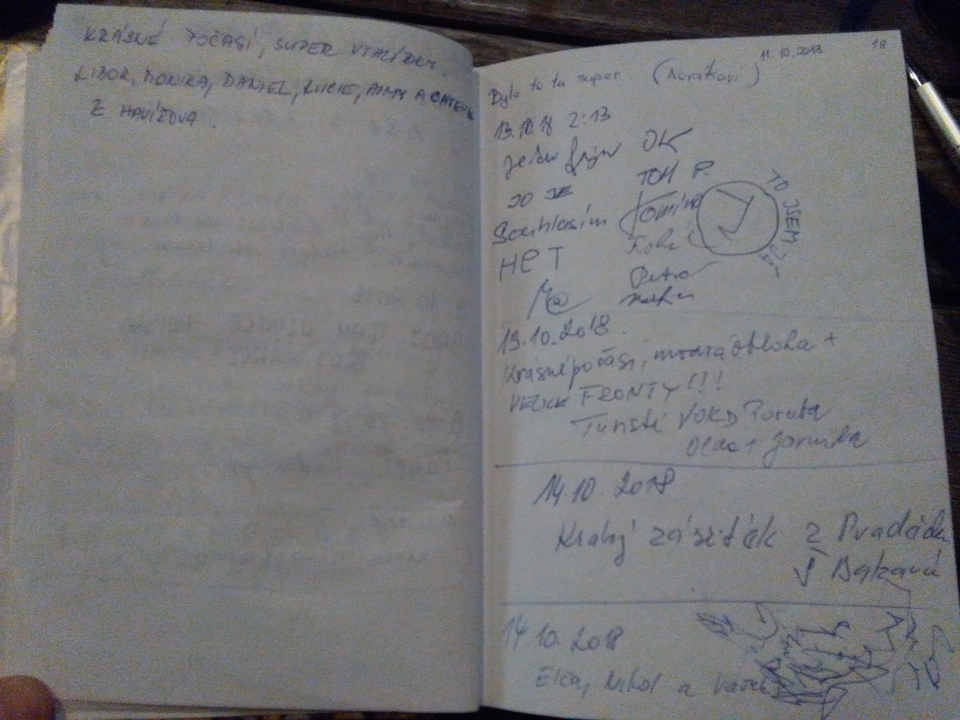 KRÁSNÉ POČASÍ, SUPER
LIBOR, MONIKA, DANIEL, LUCIE, A
Z HAVÍŘOVA.
18
11.10.2018
Bylo to tu super (Novákovi)
13.10.18 2:13
OK
JO JE
TOM P.
Souhlasím
TO JSEM JÁ
НЕТ
Petra
13.10.2018.
Krásné počasí, modrá obloha +
VELKÉ FRONTY!!!
Turisté VOKD Poruba
Olda + Jarmila
14.10.2018
Krásný zážitek z Pradědu
14.10.2018
Nikol a